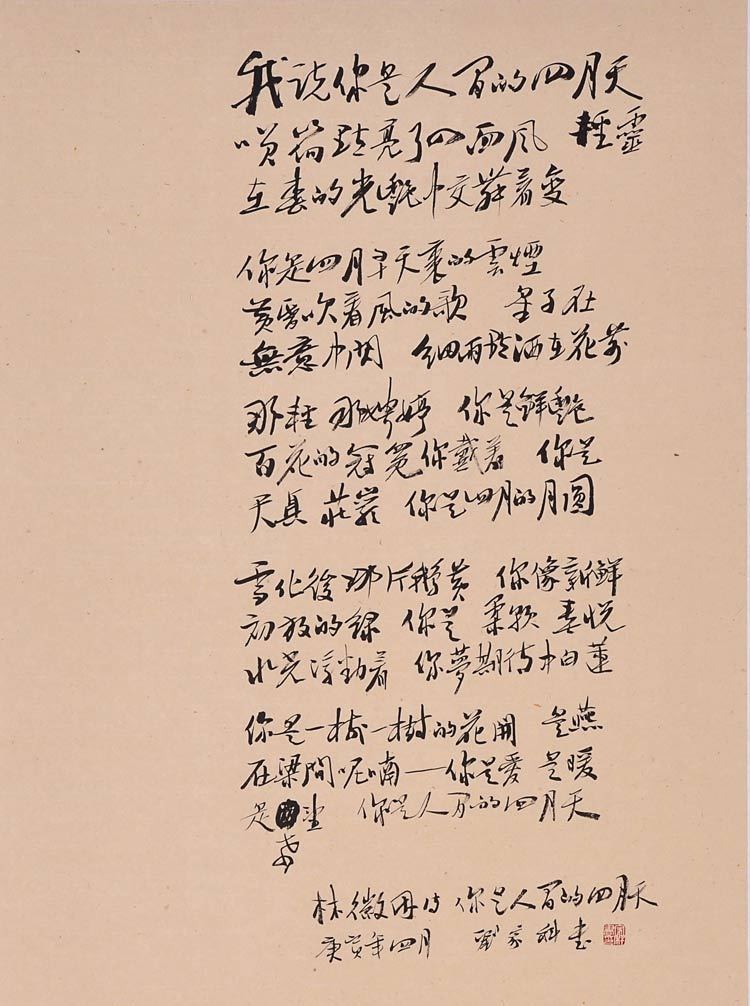 我说你是人间的四月天
唢 點亮了四面风 轻靈
在春的光艷中交舞着变
你是四月早天裏的雲煙
黄昏吹着風的歌 星子在
無意中閃 细雨 洒在花前
那轻 那娉婷 你是鲜艷
百花的冠冕你戴着 你是
天真 莊嚴 你是四月的月圆
雪化後那片鹅黄 你像新鲜
初放的绿 你是 柔 春悦
水光浮動着 你夢期待中白蓮
你是一树一樹的花開 是燕
在梁間呢喃——你是愛 是暖
是 希
你是人间的四月天
林徽因诗 你是人间的四月天
庚寅年四月 劉家科书